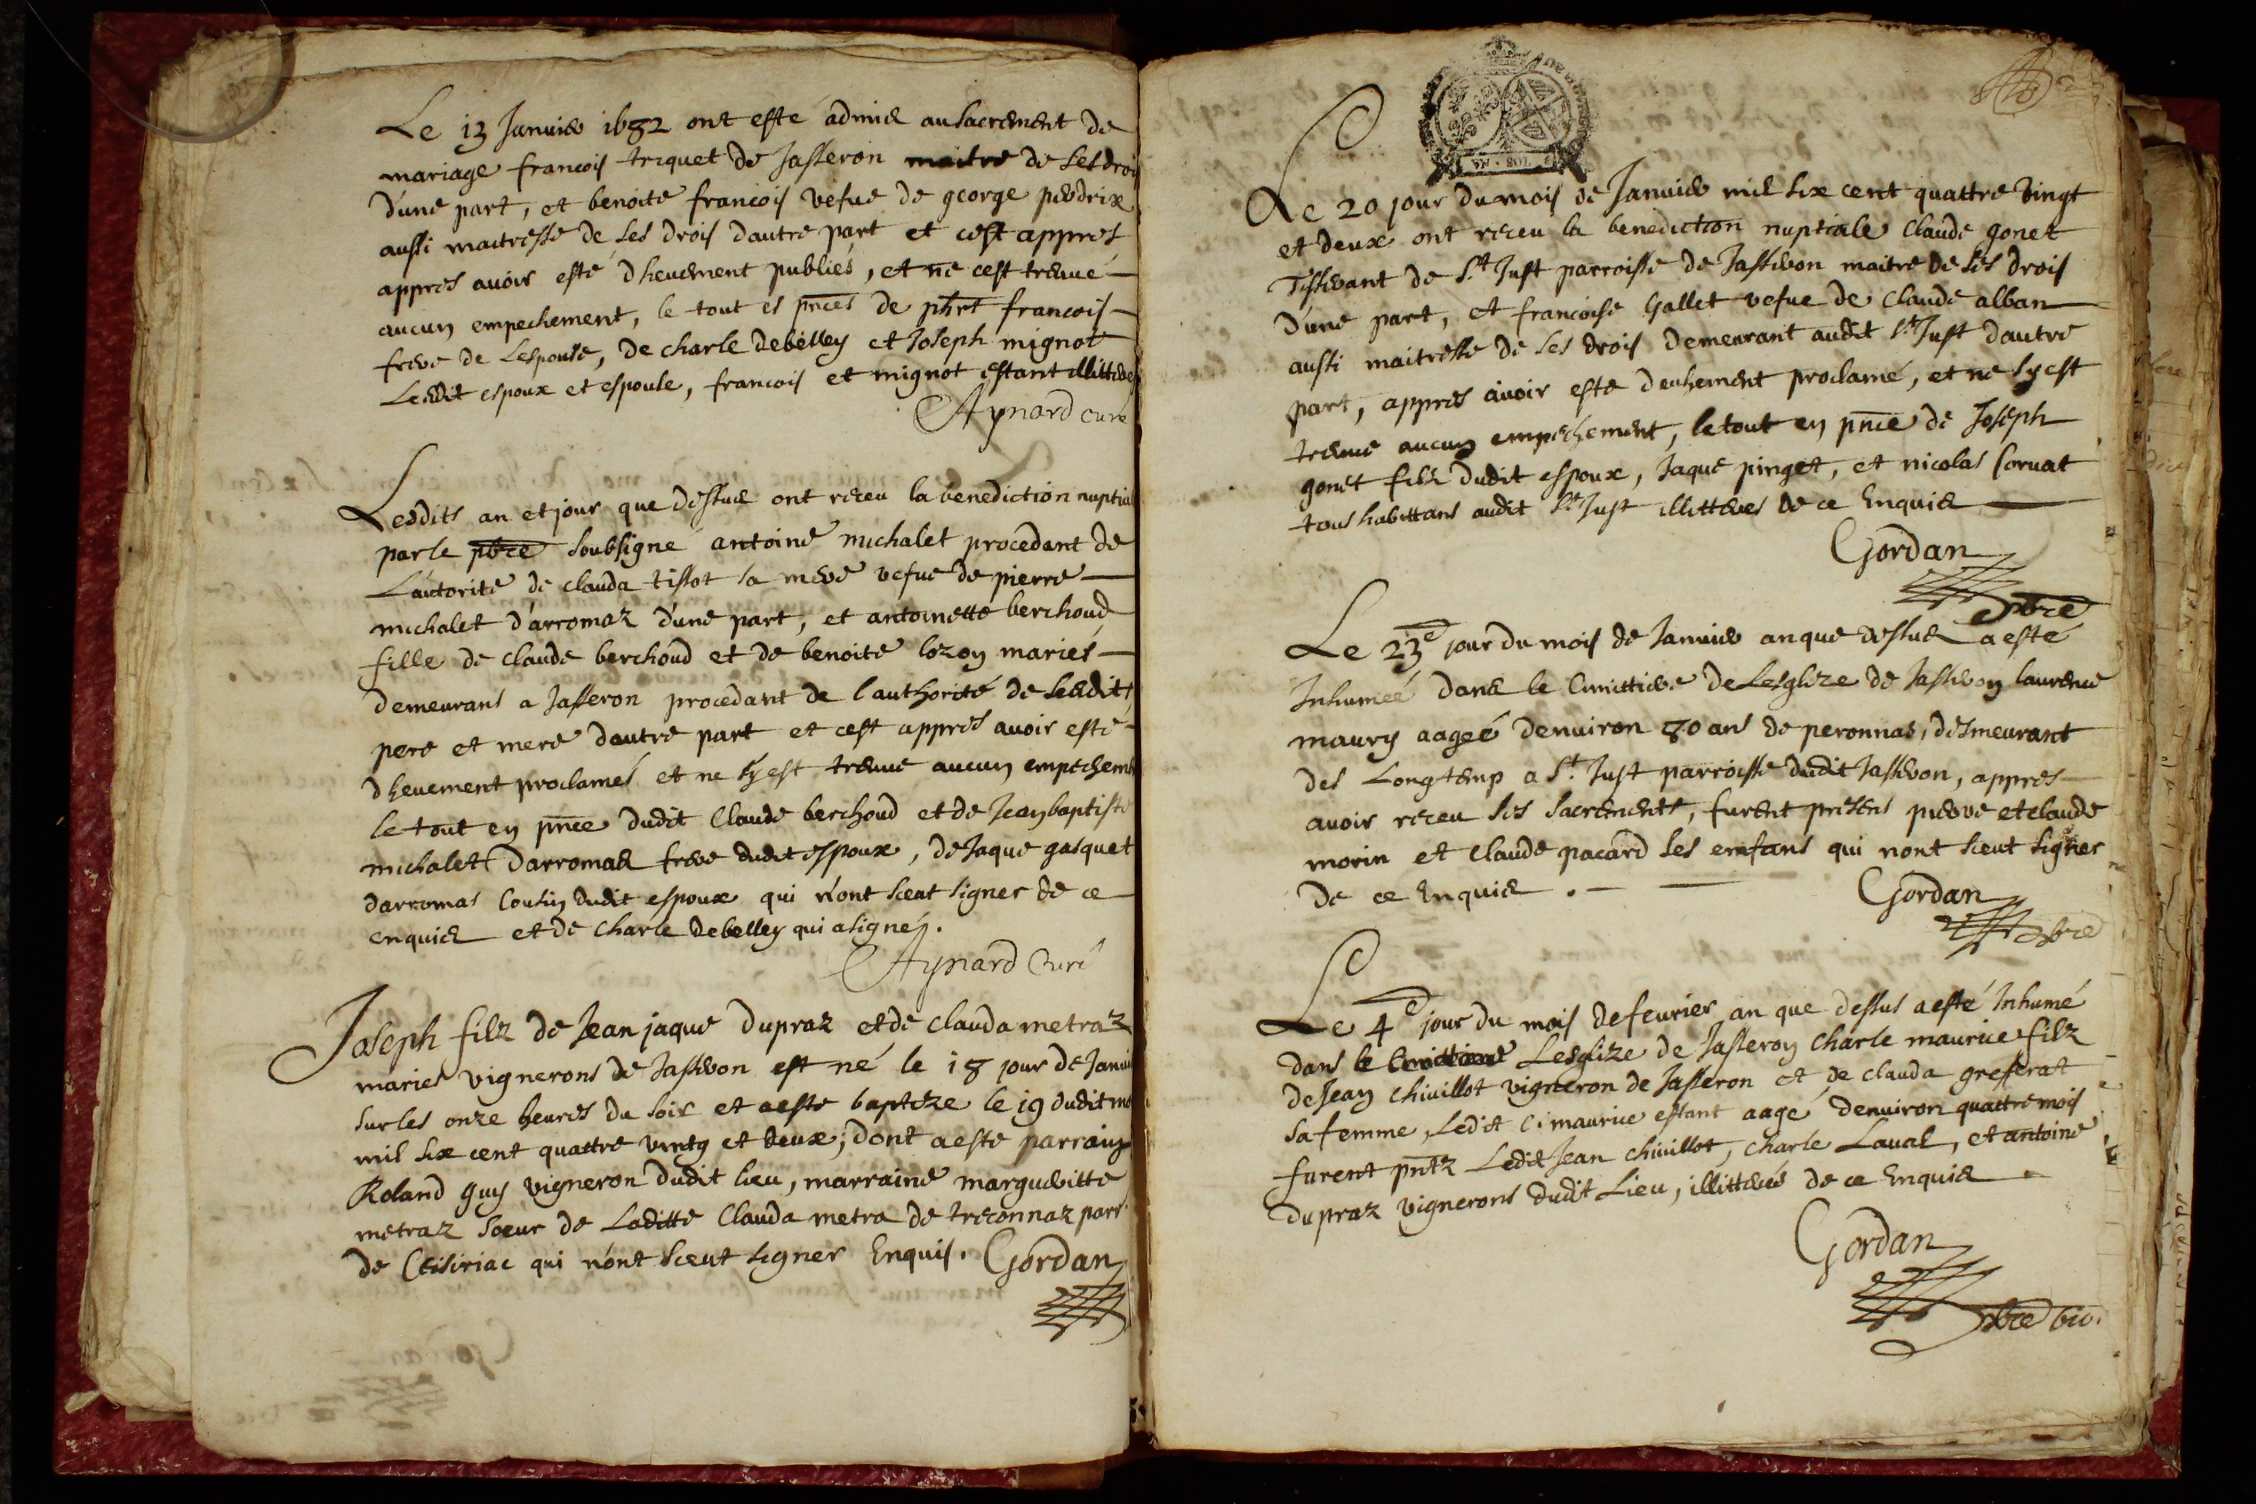 Le 13 Januier 1682 ont esté admis au sacrement de
mariage francois triquet de Jasseron maitre de ses droi
d'une part, et benoite francois vefue de george perdrix
aussi maitresse de ses drois dautre part et cest appres
appres auoir esté dheuement publiés, et ne cest treuué
aucun empechement, le tout es pnces de phrt francois
frere de Lespouse, de charle debelley et Joseph mignot
Lesdit espoux et espouse, francois et mignot estant illitteres
Aynard curé
Lesdits an et jour que dessus ont receu la benediction nuptial
par le pbre soubsigné antoine michalet procedant de
L'autorité de clauda tissot sa mere vefue de pierre
michalet d'arromaz d'une part, et antoinette berchoud
fille de claude berchoud et de benoite lozon mariés
demeurans a Jasseron procedant de l'authorité de sesdit
pere et mere dautre part et cest appres auoir esté
dheuement proclamés et ne s'y est treuué aucun empechem
le tout en pnce dudit Claude berchoud et de Jean baptiste
michalet Darromas frere dudit espoux, de Jaque gasquet
darromas Cousin dudit espoux qui n'ont sceut signer de ce
enquis et de Charle debelley qui a signé.
Aynard Curé
Joseph filz de Jean jaque dupraz et de Clauda metraz
maries vignerons de Jasseron est né le 18 jour de Januie
sur les onze heures du soir et a esté baptize le 19 dudit mo
mil six cent quattre vintg et deux; dont a esté parrain
Roland guy vigneron dudit lieu, marraine margueritte
metraz soeur de Laditte Clauda metra de treconnaz parr
de Ceisiriac qui n'ont sceut signer Enquis. Gordan
Le 20 jour du mois de Januier mil six cent quattre vingt
et deux ont receu la benediction nuptiale Claude gonet
Tisserant de St Just parroisse de Jasseron maitre de ses drois
d'une part, et francoise Gallet vefue de Claude alban
aussi maitresse de ses drois demeurant audit St Just dautre
part, appres auoir esté deuhement proclamé, et ne s'y est
treuué aucun empechement, le tout en pnce de Joseph
gonet filz dudit espoux, Jaque pinget, et nicolas Coruat
tous habittans audit St Just illitteres de ce Enquis
Gordan
pbre
Le 23e jour du mois de Januier an que dessus a esté
Inhumeé dans le Cimittiere de Lesglize de Jasseron laurence
maury aageé denuiron 80 ans de peronnas, desmeurant
des Longtemp a St. Just parroisse dudit Jasseron, appres
auoir receu ses sacrements, furent presens pierre et claude
morin et Claude pacard ses enfans qui n'ont sceut signer
de ce Enquis.
Gordan
pbre
Le 4e jour du mois de feurier an que dessus a esté Inhumé
dans le Cimittiere Lesglize de Jasseron Charle maurice filz
de Jean Chiuillot vigneron de Jasseron et de clauda grefferat
sa femme, Ledit C: maurice estant aagé denuiron quattre mois
furent pntz Ledit Jean Chiuillot, Charle Laual, et antoine
dupraz vignerons dudit Lieu, illitterés de ce Enquis
Gordan
pbre vic.